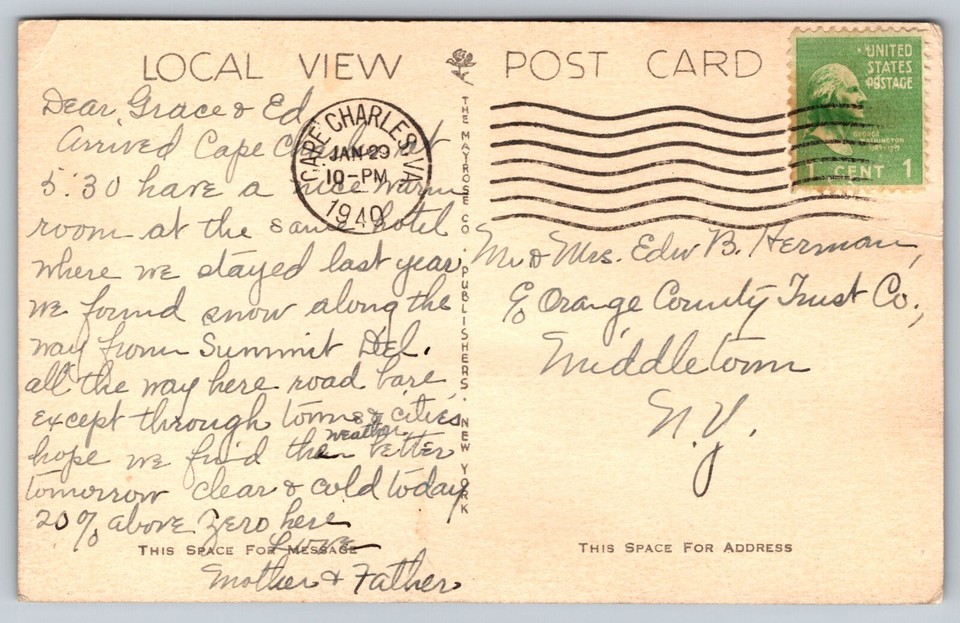 LOCAL VIEW POST CARD
Dear, Grace & Ed
Arrived Cape Charles at
5:30 have a nice warm
room at the same hotel
where we stayed last year,
we found snow along the
way from Summit Del.
all the way here road bare
except through towns & cities
hope we find the weather better
tomorrow clear & cold today
20% above zero here
Love
Mother & Father
THIS SPACE FOR MESSAGE
THE MAYROSE CO. PUBLISHERS. NEW YORK
CAPE CHARLES, VA.
JAN 29
10-PM
1940
UNITED
STATES
POSTAGE
GEORGE
WASHINGTON
1789-1797
1 CENT 1
Mr & Mrs. Edw B. Herman,
c/o Orange County Trust Co.,
Middletown
N.Y.
THIS SPACE FOR ADDRESS